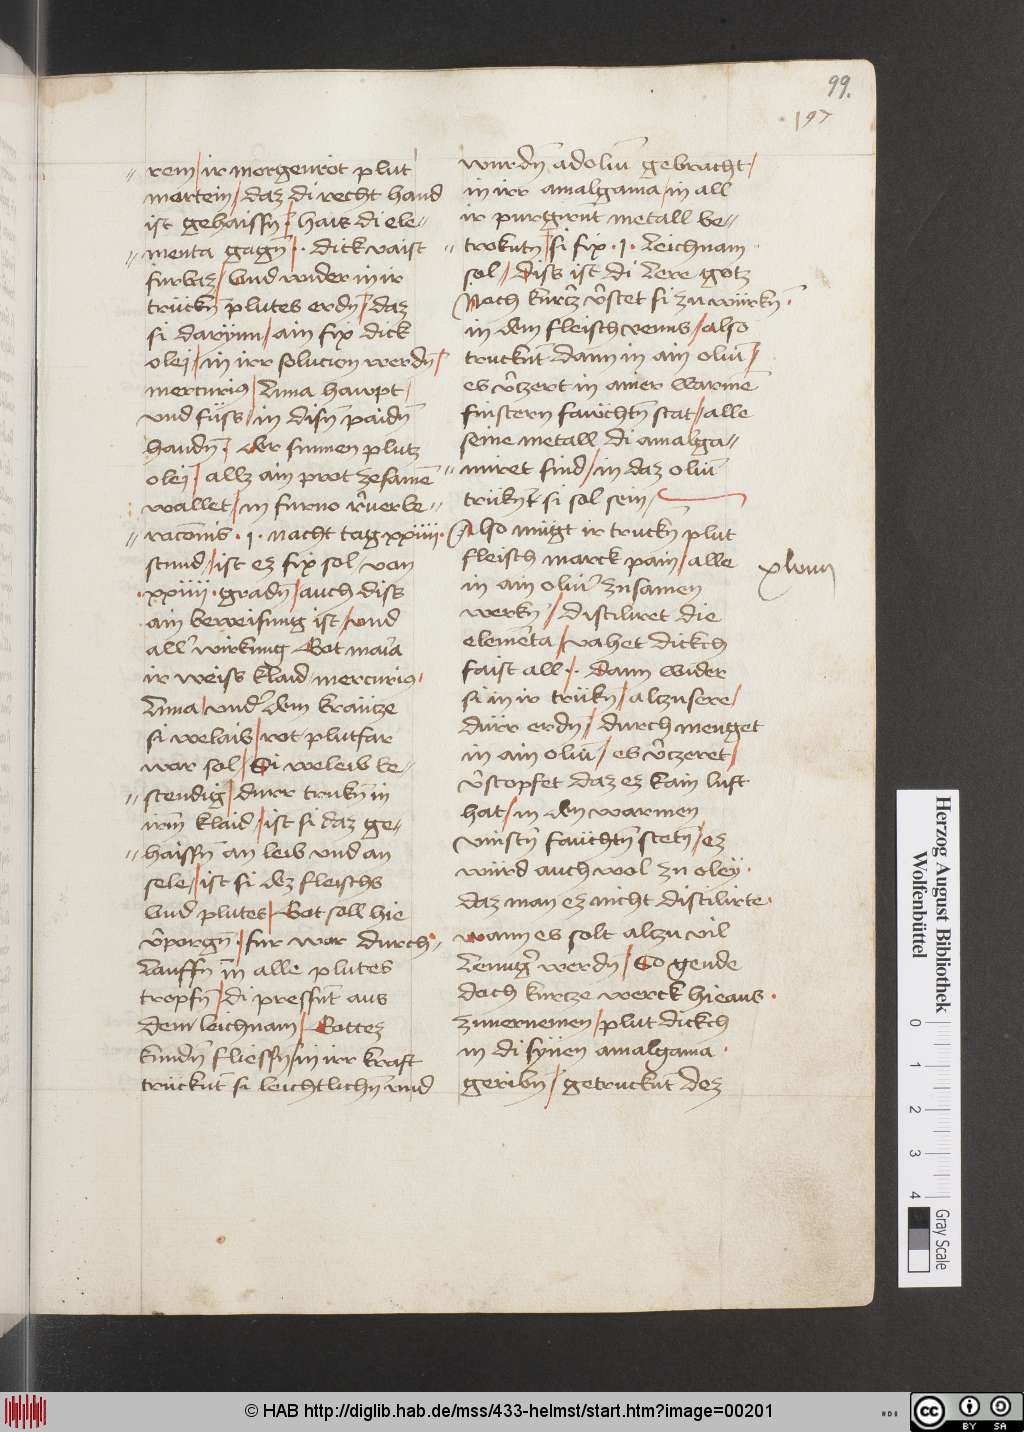 99.
197
rem / ir morgenrot plut
martein / daz di recht hand
ist gehaissn̄ / hais di ele=
menta gagn̄ / . dick vaist
furbaz / Vnd wider in ir
trückn̄ plutes erdn̄ / daz
si darynn / ain fix dick
olei / in irr solucion werdn̄ /
mercurius / Luna haupt /
vnd füss / in disn̄ paidn̄
handn̄ / der sunnen plutz
olei / allz ain prot zesamē
wallet / in furno
· I · nacht tag · xxiiii ·
stund / ist ez fix sol / von
· xxiiii · gradn̄ / auch diss
ain beweisung ist / vnd
all wirkung Got maria
ir weiss klaid mercurius /
Luna / vnd dem kräutze
si welaib / rot plutfar
war sol / Si weleib be=
stendig / durr trukn̄ in
irm̄ klaid / ist si daz ge=
haissn̄ an leib vnd an
sele / ist si dez fleischs
Vnd plutes / Got soll hie
v̄porgn̄ / fur war durch=
Lauffn̄ in alle plutes
tropfn̄ / di pressn̄t aus
dem leichnam / Gottez
kundn̄ fliessn̄ / in irr kraft
trückn̄t si leichtlichn̄ vnd
wurdn̄ ad oliū gebracht /
in irr amalgama / in all
ir purgirn̄t metall be=
trokntn̄ / si fix · I · Leichnam
sol / Diss ist di Lere gotz
Noch kurtz v̄stet si zu würkn̄ /
in dem fleisch venus / also
trucknt̄ dann in ain oliū /
es v̄czert in ainer warmē
finstern fauchtn̄ stat / alle
seine metall di amalga=
miret sind / in daz oliū
trükn̄t si sol sein /
Also mügt ir truckn̄ plut
fleisch marck pain / alle
in ain oliū zusamen
werkn̄ / Distiliret die
elemēta / vahet dickch
faist all / . Dann wider
si in ir trükn̄ / alzusere /
dürr erdn̄ / durch menget
in ain oliū / es v̄czeret /
v̄stopfet daz ez kain luft
hat / in den warmen
vinstn̄ fauchtn̄ stetn̄ / ez
würd auch wol zu oley ·
daz man ez nicht distilirte ·
wann es solt alzu vil
werdn̄ / So gende
doch kurcze werck hieaus ·
zuuernemen / plut dickch
in di syben amalgama ·
geribn̄ / getrucknt dez
Herzog August Bibliothek
Wolfenbüttel
0 1 2 3 4
Gray Scale
© HAB http://diglib.hab.de/mss/433-helmst/start.htm?image=00201
cc BY SA